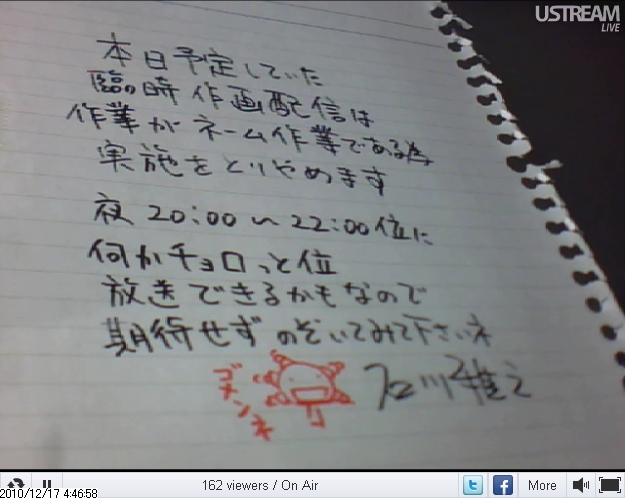 USTREAM
LIVE
本日予定していた
臨時作画配信は
作業がネーム作業である為
実施をとりやめます
夜20:00〜22:00位に
何かチョロっと位
放送できるかもなので
期待せずのぞいてみて下さいネ
ゴメンネ
石川雅之
2010/12/17 4:46:58
162 viewers / On Air
More